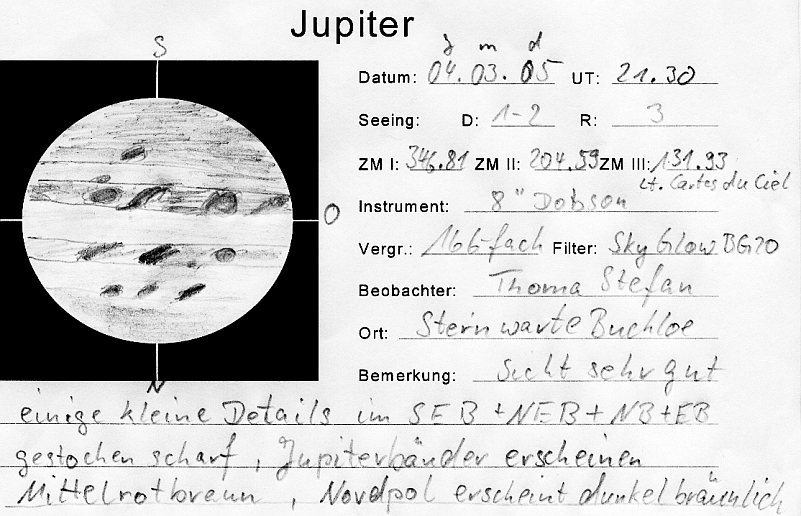 Jupiter
S
j m d
Datum: 04.03.05 UT: 21.30
Seeing: D: 1-2 R: 3
ZM I: 346.81 ZM II: 204.59 ZM III: 131.93
lt. Cartes du Ciel
O
Instrument: 8" Dobson
Vergr.: 166-fach Filter: Sky Glow BG20
Beobachter: Thoma Stefan
Ort: Sternwarte Buchloe
Bemerkung: Sicht sehr gut
N
einige kleine Details im SEB + NEB + NB + EB
gestochen scharf, Jupiterbänder erscheinen
Mittelrotbraun, Nordpol erscheint dunkelbräunlich